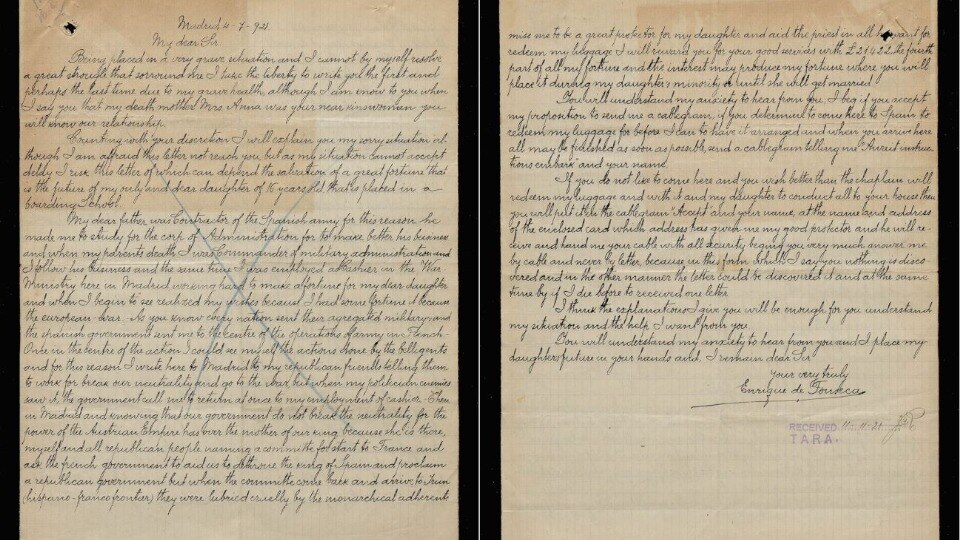 Madrid, 4-7-921
My dear Sir
Being placed in a very grave situation and I cannot by myself resolve
a great struggle that sorround me I take the liberty to write you the first and
perhaps the last time due to my grave health, although I am know to you when
I say you that my death mother Mrs. Anna was your near you
will know our relationship.
Counting with your discretion I will explain you my sorry situation al
though I am affraid this letter not reach you but as my situation cannot accept
delay I risk this letter of which can depend the salvation of a great fortune that
is the future of my only and dear daughter of 15 years old that is placed in a
boarding School.
My dear father was Contractor of the Spanish army for this reason he
made me to study for the corp of Administration for to make better his business
and when my parents death I was commander of military administration and
I follow his business and the same time I was employed as cashier in the War
Ministry here in Madrid working hard to make a fortune for my dear daughter
and when I begin to see realized my wishes because I had some fortune it became
the european-war. As you know every nation sent their agregated military and
the spanish government sent me to the centre of the operations of army in French
Once in the centre of the action I could see my all the actions done by the belligents
and for this reason I write here to Madrid to my republican friends telling them
to work for break our neutrality and go to the war but when my politician enemies
saw it, the government call me to return at once to my employment of cashier. Then
in Madrid and knowing that our government do not break the neutrality for the
power of the Austrian Empire has over the mother of our king because she is there,
myself and all republican people naming a committe for start to France and
ask the french government to aid us to dethrone the king of Spain and proclaim
a republican government but when the committe come back and arrive to Irun
(hispano-franco frontier) they were cruelly by the monarchical adherents
mise me to be a great protector for my daughter and aid the priest in all he want for
redeem my luggage I will reward you for your good services with £21422 the fourth
part of all my fortune and the interest may produce my fortune where you will
place it during my daughter's minority or until she will get married.
You will understand my anxiety to hear from you, I beg if you accept
my proposition to send me a callegram, if you determine to come here to Spain to
redeem my luggage for before I can to have it arranged and when you arrive here
all may be finished as soon as possible, send a cablegram telling me "Await instruc
tions embark" and your name.
If you do not like to come here and you wish better than the chaplain will
redeem my luggage and with it and my daughter to conduct all to your house then
you will put it in the cablegram "Accept" and your name, at the name and address
of the enclosed card which address has given me my good protector and he will re-
ceive and hand me your cable with all security beging you very much answer me
by cable and never by letter because in this form which I say you nothing is disco
vered and in the other manner the letter could be discovered it and at the same
time by if I die before to received one letter
I think the explanations I give you will be enough for you understand
my situation and the help I want from you.
You will understand my anxiety to hear from you and I place my
daughter's future in your hands and. I remain dear Sir
Your very truly
Enrique de Fonseca
RECEIVED
T.A.R.A.